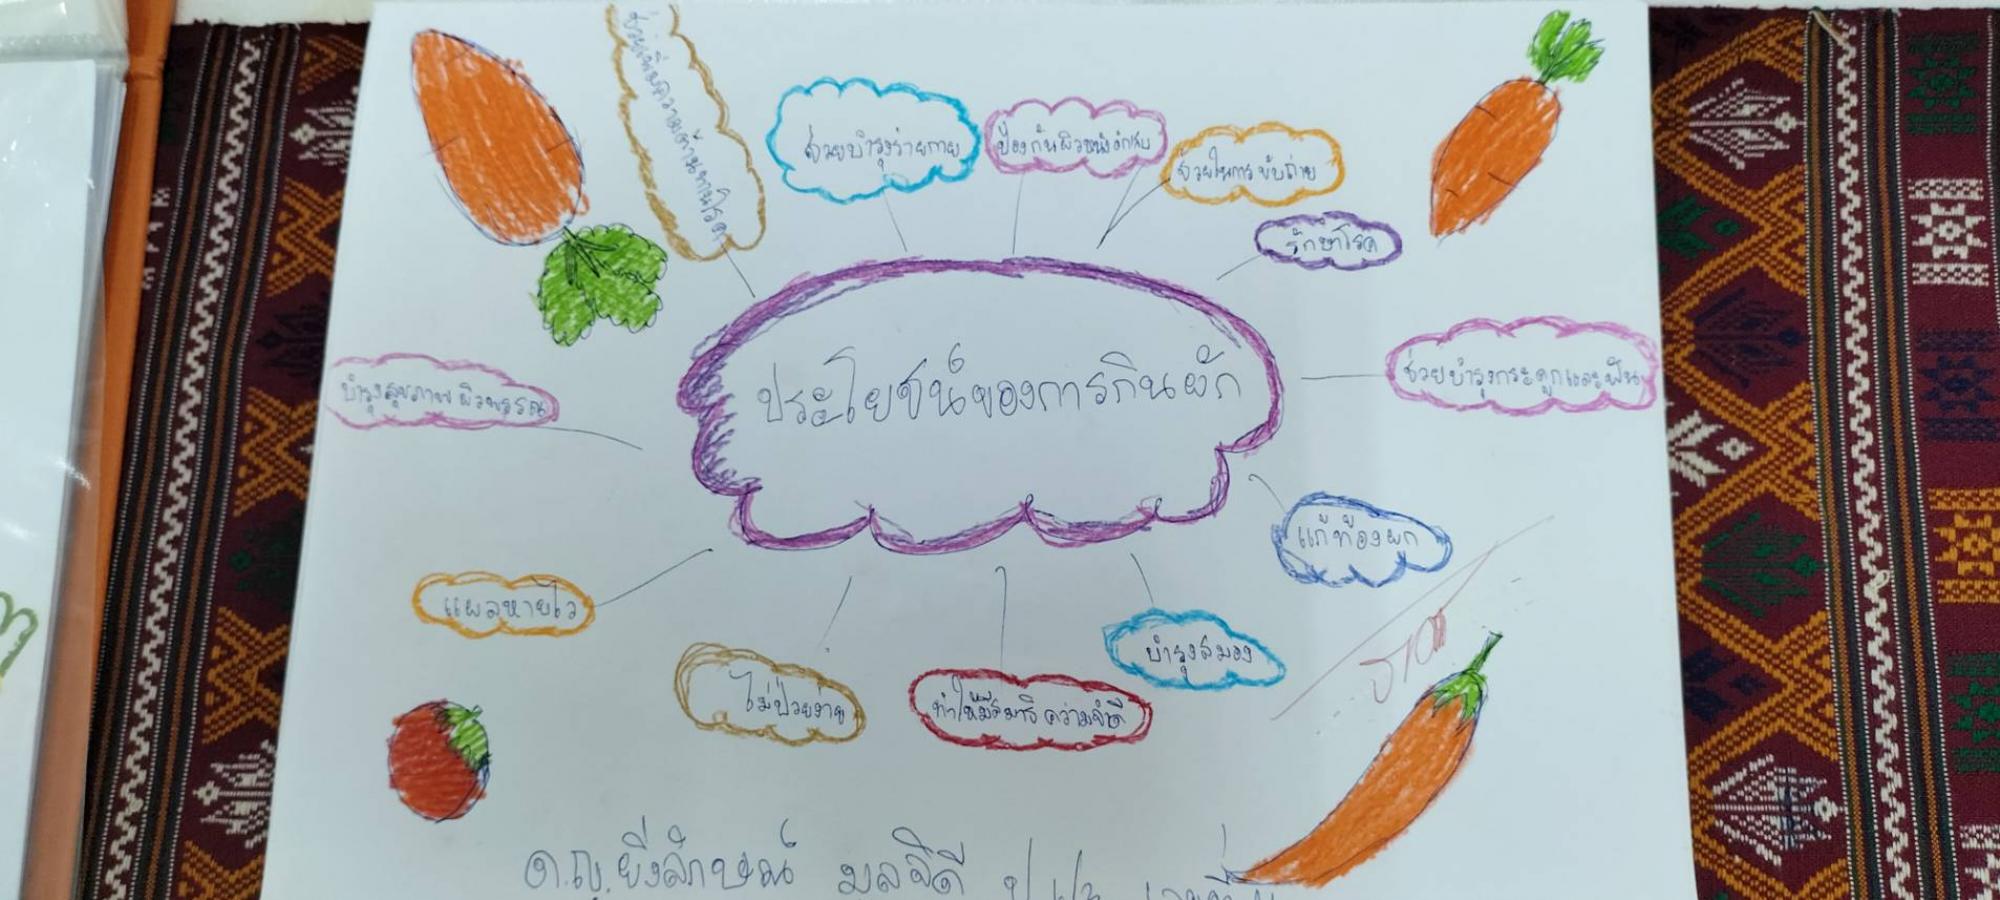 ช่วยเพิ่มความต้านทานโรค
ช่วยบำรุงร่างกาย
ป้องกันผิวหนังอักเสบ
ช่วยในการขับถ่าย
รักษาโรค
ประโยชน์ของการกินผัก
ช่วยบำรุงกระดูกและฟัน
บำรุงสุขภาพผิวพรรณ
แก้ท้องผูก
แผลหายไว
บำรุงสมอง
ไม่ป่วยง่าย
ทำให้มีสมาธิ ความจำดี
ด.ญ.ยิ่งลักษณ์ มูลจิตดี